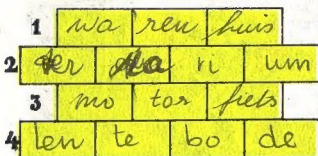 1 wa ren huis
2 ter ra ri um
3 mo tor fiets
4 len te bo de